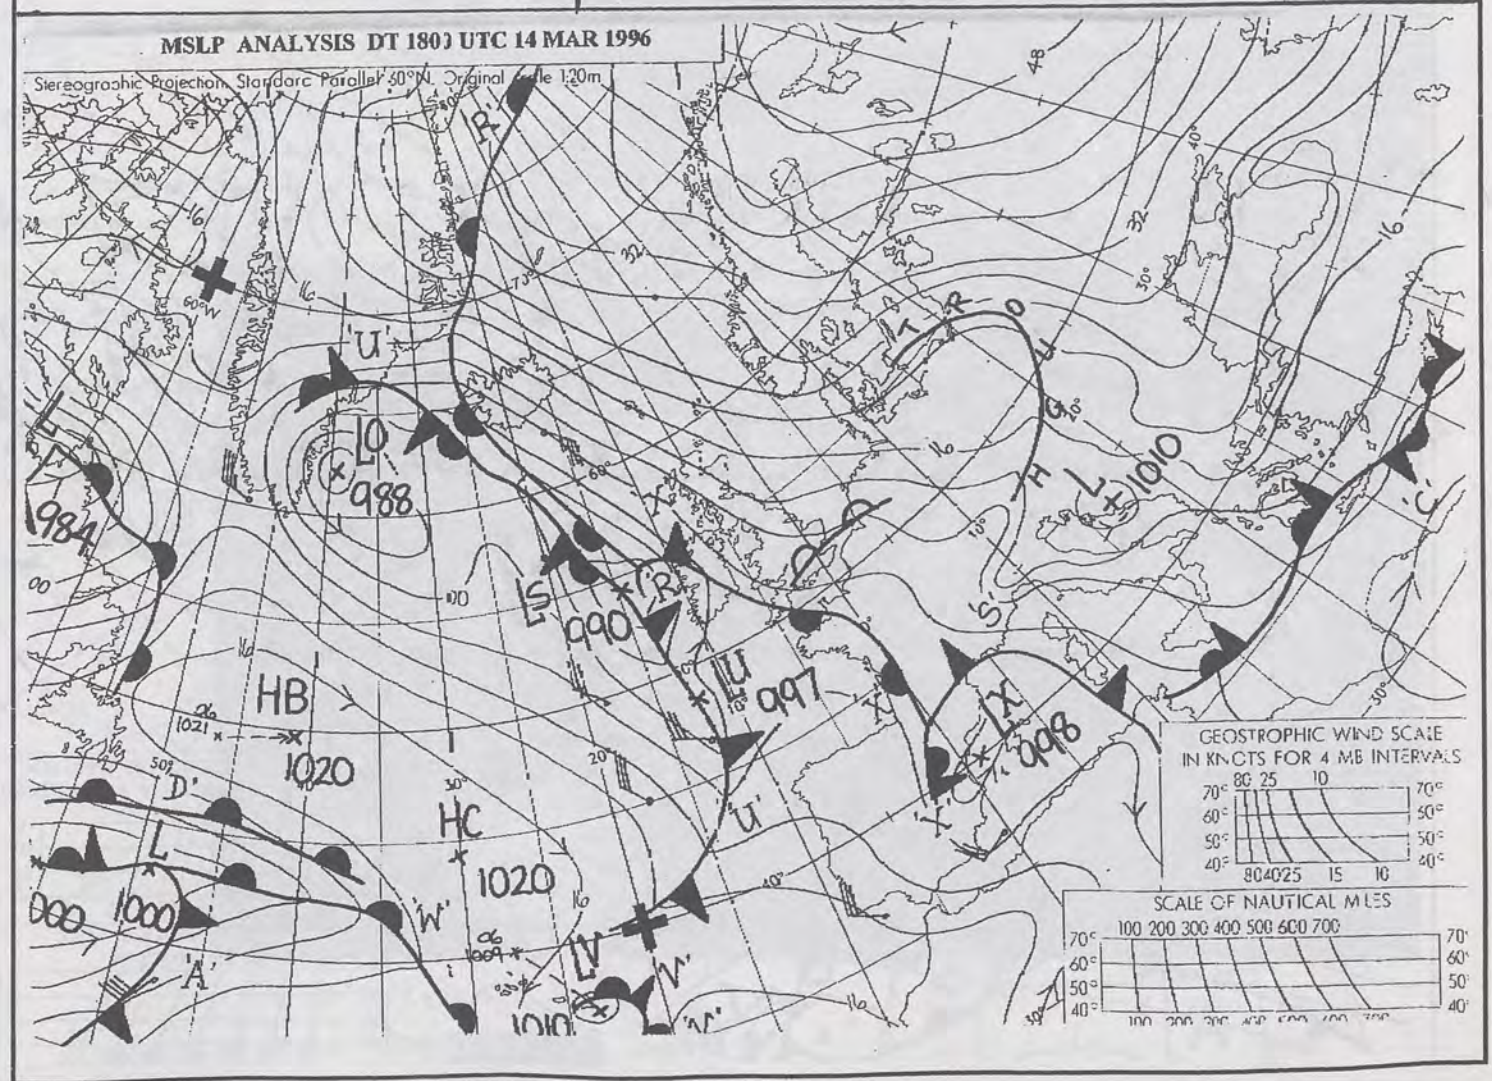 MSLP ANALYSIS DT 1800 UTC 14 MAR 1996
Stereographic Projection, Standard Parallel 60°N. Original Scale 1:20m
48
40°
'R'
16
32
32
16
70°
30°
60°W
16
T R O U G H
'U'
20°
LO
988
16
60°
L
1010
'C'
L
984
X
10°
00
100
LS
990
'R'
'S'
16
LU
997
HB
06
1021
1020
X
LX
998
50°
'D'
20°
30°
HC
1020
'U'
'X'
40°
L
1000
000
'A'
'W'
16
06
1009
LV
1010
'V'
16
30°
GEOSTROPHIC WIND SCALE
IN KNOTS FOR 4 MB INTERVALS
80 25 10
70° 70°
60° 60°
50° 50°
40° 40°
80 40 25 15 10
SCALE OF NAUTICAL MILES
100 200 300 400 500 600 700
70° 70°
60° 60°
50° 50°
40° 40°
100 200 300 400 500 600 700